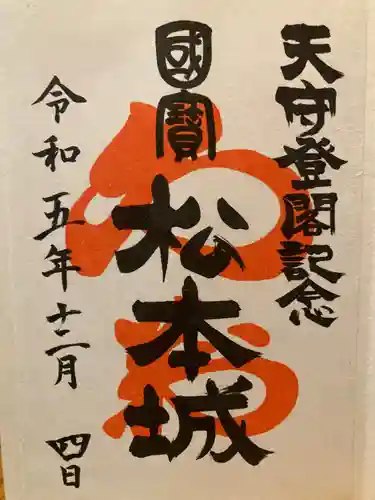 天守登閣記念
國寶
松本城
令和五年十二月四日